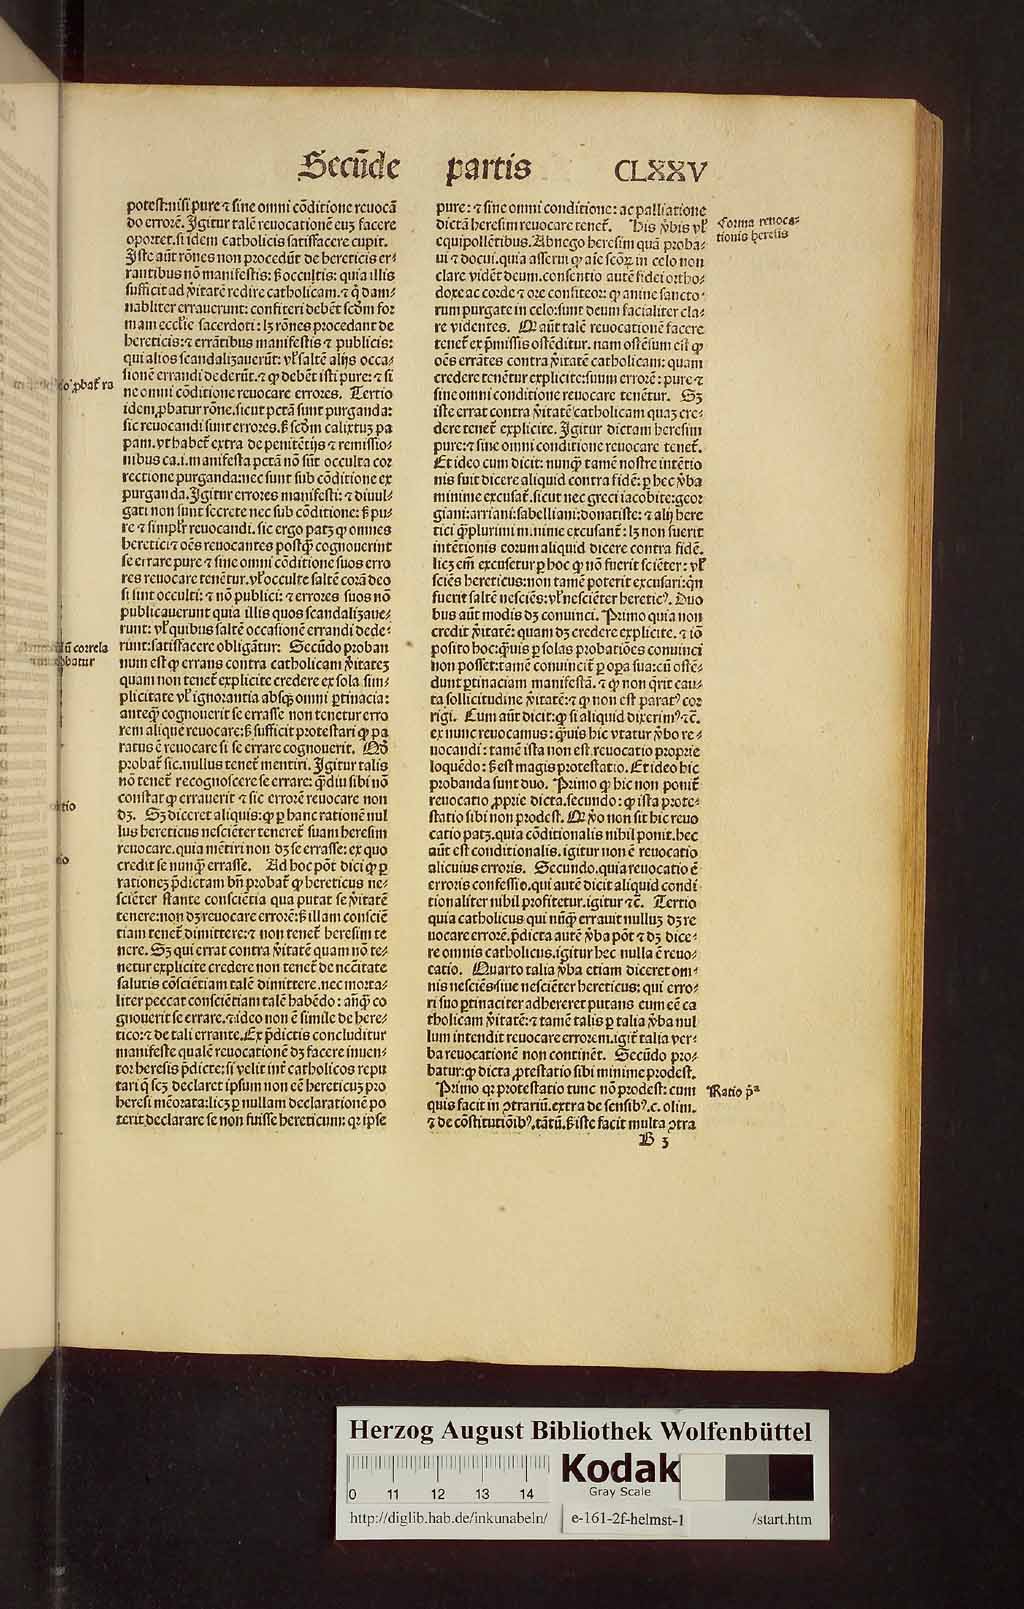 Secūde partis CLXXV
potest:nisi pure ⁊ sine omni cōditione reuocā
do errorē. Igitur talē reuocationē euꝫ facere
oportet.si idem catholicis satisfacere cupit.
Iste aūt rōnes non procedūt de hereticis er⸗
rantibus nō manifestis: sꝫ occultis: quia illis
sufficit ad v̓itatē redire catholicam. ⁊ q̇ dam⸗
nabliter errauerunt: confiteri debēt scḋm for
mam eccl̓ie sacerdoti: lꝫ rōnes procedant de
hereticis:⁊ errātibus manifestis ⁊ publicis:
qui alios scandalizauerūt: vl̓ saltē alijs occa⸗
sionē errandi dederūt.⁊ ꝙ debēt isti pure: ⁊ si
ne omni cōditione reuocare errores. Tertio
idem ꝓbatur rōne.sicut pctā sunt purganda:
sic reuocandi sunt errores.sꝫ scḋm calixtuꝫ pa
pam.vt habet̄ extra de penitētijs ⁊ remissio⸗
nibus ca.i.manifesta pctā nō sūt occulta cor
rectione purganda:nec sunt sub cōditione ex
purganda.Igitur errores manifesti: ⁊ diuul⸗
gati non sunt secrete nec sub cōditione: sꝫ pu⸗
re ⁊ simplr̄ reuocandi. sic ergo patꝫ ꝙ omnes
heretici:⁊ oēs reuocantes postq̄ȝ cognouerint
se errare pure ⁊ sine omni cōditione suos erro
res reuocare tenētur.vl̓ occulte saltē corā deo
si sint occulti: ⁊ nō publici: ⁊ errores suos nō
publicauerunt quia illis quos scandalizaue⸗
runt: vl̓ quibus saltē occasionē errandi dede⸗
runt:satisfacere obligātur: Secūdo proban
dum est ꝙ errans contra catholicam v̓itateꝫ
quam non tenet̄ explicite credere ex sola sim⸗
plicitate vl̓ ignorantia absqꝫ omni ꝑtinacia:
anteq̄ȝ cognouerit se errasse non tenetur erro
rem aliquē reuocare:sꝫ sufficit protestari ꝙ pa
ratus ē reuocare si se errare cognouerit. Qḋ
probat̄ sic.nullus tenet̄ mentiri. Igitur talis
nō tenet̄ recognoscere se errare: q̄ȝdiu sibi nō
constat ꝙ errauerit ⁊ sic errorē reuocare non
dꝫ. Sꝫ diceret aliquis:ꝙ ꝑ hanc rationē nul
lus hereticus nesciēter teneret̄ suam heresim
reuocare.quia mētiri non dꝫ se errasse: ex quo
credit se nunq̄ȝ errasse. Ad hoc pōt dici ꝙ ꝑ
rationeꝫ p̄dictam bn̄ probat̄ ꝙ hereticus ne⸗
sciēter stante consciētia qua putat se v̓itatē
tenere:non dꝫ reuocare errorē:sꝫ illam consciē
tiam tenet̄ dimittere:⁊ non tenet̄ heresim te
nere. Sꝫ qui errat contra v̓itatē quam nō te⸗
netur explicite credere non tenet̄ de nec̄itate
salutis cōsciētiam talē dimittere.nec morta⸗
liter peccat consciētiam talē habēdo: anteq̄ȝ co
gnouerit se errare.⁊ ideo non ē simile de here⸗
tico:⁊ de tali errante.Ex p̄dictis concluditur
manifeste qualē reuocationē dꝫ facere inuen⸗
tor heresis p̄dicte:si velit int̄ catholicos repu
tari q̇ scꝫ declaret ipsum non eē hereticuꝫ pro
heresi mēorata:licꝫ ꝑ nullam declarationē po
terit declarare se non fuisse hereticum: qꝛ ipse
pure: ⁊ sine omni conditione: ac palliatione
dictā heresim reuocare tenet̄. His v̓bis vl̓
equipollētibus.Abnego heresim quā proba⸗
ui ⁊ docui.quia asserui ꝙ aīe scōꝝ in celo non
clare vidēt deum.consentio autē fidei ortho⸗
doxe ac corde ⁊ ore confiteor: ꝙ anime sancto⸗
rum purgate in celo:sunt deum facialiter cla⸗
re videntes. Ꝙ aūt talē reuocationē facere
tenet̄ ex p̄missis ostēditur. nam ostēsum est ꝙ
oēs errātes contra v̓itatē catholicam: quam
credere tenētur explicite:suum errorē: pure ⁊
sine omni conditione reuocare tenētur. Sꝫ
iste errat contra v̓itatē catholicam quaꝫ cre⸗
dere tenet̄ explicite. Igitur dictam heresim
pure:⁊ sine omni conditione reuocare tenet̄.
Et ideo cum dicit: nunq̄ȝ tamē nostre intētio
nis fuit dicere aliquid contra fidē: ꝑ hec v̓ba
minime excusat̄.sicut nec greci iacobite:geor
giani:arriani:sabelliani:donatiste: ⁊ alij here
tici q̄ȝplurimi minime excusant̄: lꝫ non fuerit
intētionis eorum aliquid dicere contra fidē.
licꝫ em̄ excusetur ꝑ hoc ꝙ nō fuerit sciēter: vl̓
sciēs hereticus:non tamē poterit excusari:q̇n
fuerit saltē nesciēs:vl̓ nesciēter heretic⁹. Duo
bus aūt modis dꝫ conuinci. Primo quia non
credit v̓itatē: quam dꝫ credere explicite. ⁊ iō
posito hoc:q̄ȝuis ꝑ solas probatiōes conuinci
non posset:tamē conuincit̄ ꝑ oꝑa sua:cū ostē⸗
dunt ꝑtinaciam manifestā.⁊ ꝙ non q̄rit cau⸗
ta sollicitudine v̓itatē:⁊ ꝙ non est parat⁹ cor
rigi. Cum aūt dicit:ꝙ si aliquid dixerim⁹ ⁊c̄.
ex nunc reuocamus: q̄ȝuis hic vtatur v̓bo re⸗
uocandi: tamē ista non est reuocatio proprie
loquēdo: sꝫ est magis protestatio. Et ideo hic
probanda sunt duo. Primo ꝙ hic non ponit̄
reuocatio ꝓprie dicta.secundo: ꝙ ista prote⸗
statio sibi non prodest. Ꝙ v̓o non sit hic reuo
catio patꝫ.quia cōditionalis nihil ponit.hec
aūt est conditionalis.igitur non ē reuocatio
alicuius erroris. Secundo.quia reuocatio ē
erroris confessio.qui autē dicit aliquid condi
tionaliter nihil profitetur.igitur ⁊c̄. Tertio
quia catholicus qui nūq̄ȝ errauit nulluꝫ dꝫ re
uocare errorē.p̄dicta autē v̓ba pōt ⁊ dꝫ dice⸗
re omnis catholicus.igitur hec nulla ē reuo⸗
catio. Quarto talia v̓ba etiam diceret om⸗
nis nesciēs siue nesciēter hereticus: qui erro⸗
ri suo ꝑtinaciter adhereret putans eum eē ca
tholicam v̓itatē:⁊ tamē talis ꝑ talia v̓ba nul
lum intendit reuocare errorem.igit̄ talia ver⸗
ba reuocationē non continēt. Secūdo pro⸗
batur:ꝙ dicta ꝓtestatio sibi minime prodest.
Primo qꝛ protestatio tunc nō prodest: cum
quis facit in ꝯtrariū.extra de sensib⁹.c. olim.
⁊ de cōstitutiōib⁹.tātū.sꝫ iste facit multa ꝯtra
B 3
Forma reuoca⸗
tionis heresis
Ratio p̄ᵃ
ꝓbat̄ ra
correla
ꝓbatur
Herzog August Bibliothek Wolfenbüttel
0 11 12 13 14
Kodak
Gray Scale
http://diglib.hab.de/inkunabeln/ e-161-2f-helmst-1 /start.htm